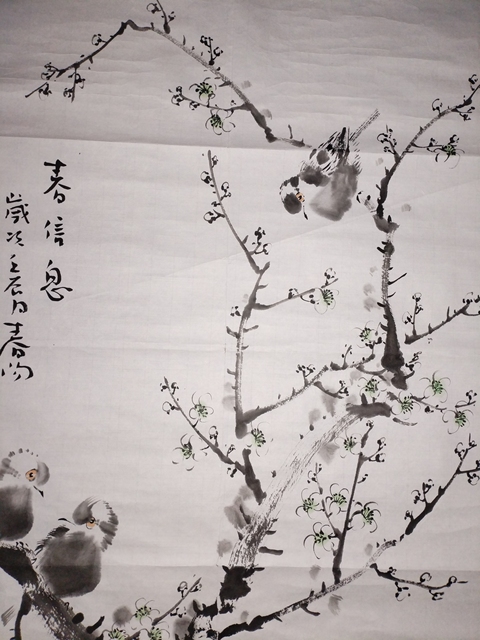 春信息
歲次壬辰月春